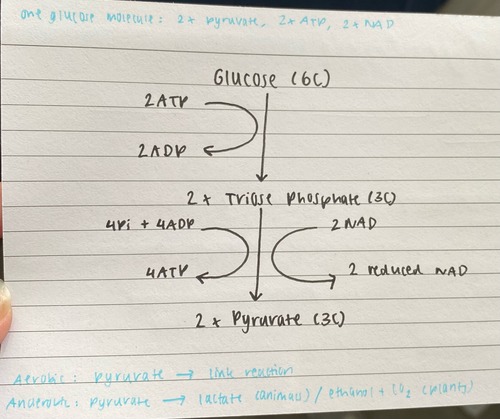 one glucose molecule: 2x pyruvate, 2x ATP, 2x NAD
Glucose (6C)
2ATP
2ADP
2x Triose Phosphate (3C)
4Pi + 4ADP
2NAD
4ATP
2 reduced NAD
2x Pyruvate (3C)
Aerobic: pyruvate → link reaction
Anaerobic: pyruvate → lactate (animals) / ethanol + CO2 (plants)